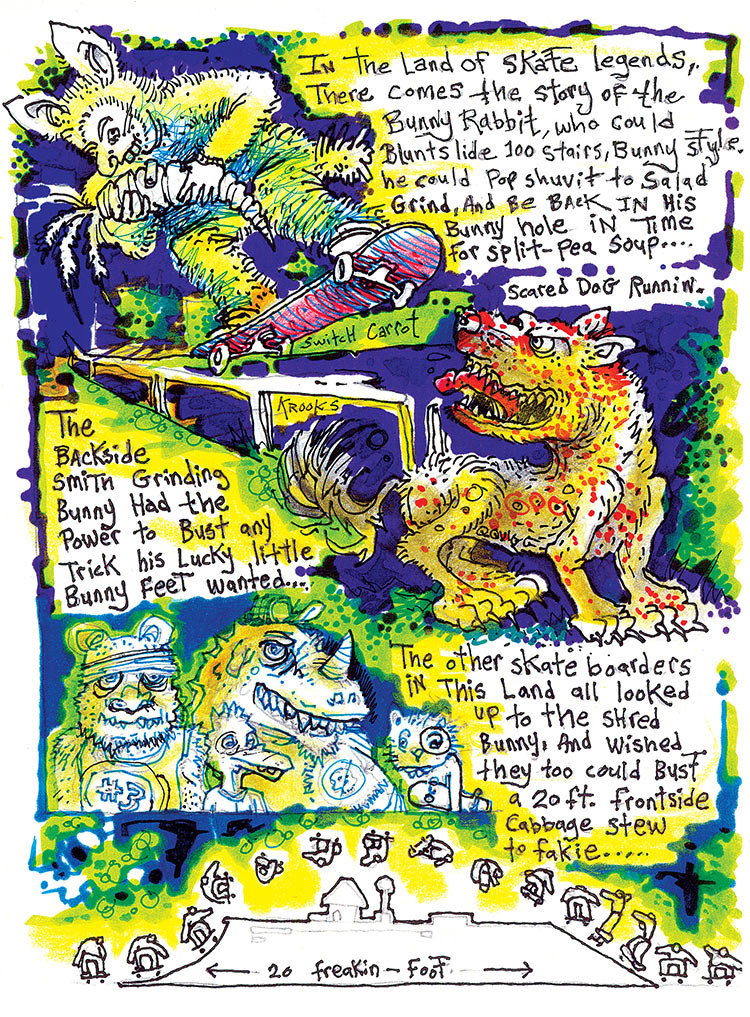 In the Land of skate legends,
There comes the story of the
Bunny Rabbit, who could
Bluntslide 100 stairs, Bunny Style.
he could Pop shuvit to Salad
Grind, And Be Back In His
Bunny hole in Time
for split-pea soup....
scared Dog Runnin.
switch Carrot
Krooks
The
Backside
smith Grinding
Bunny Had the
Power to Bust any
Trick his Lucky little
Bunny Feet wanted...
The other skate boarders
in This Land all looked
up to the shred
Bunny, And wished
they too could Bust
a 20ft. frontside
Cabbage stew
to fakie.....
#3
20 freakin-Foot